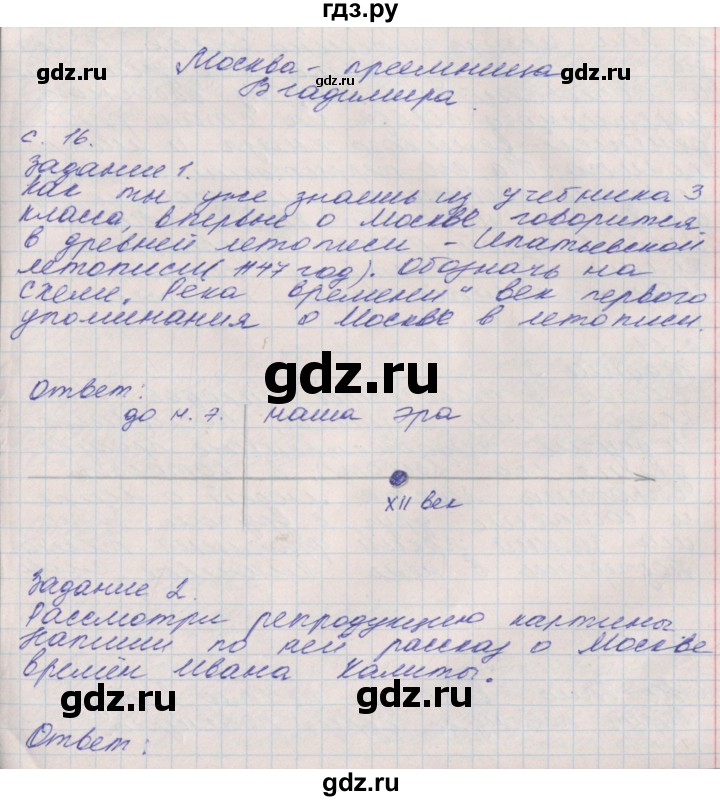 гдз.ру
gdz.ru gdz.ru
Москва - преемница
Владимира.
с. 16.
Задание 1.
Как ты уже знаешь из учебника 3
класса, впервые о Москве говорится
в древней летописи - Ипатьевской
летописи (1147 год). Обозначь на
схеме „Река времени" век первого
упоминания о Москве в летописи.
gdz.ru gdz.ru
gdz.ru
Ответ:
до н.э. наша эра
XII век
gdz.ru gdz.ru
Задание 2.
Рассмотри репродукцию картины
Напиши по ней рассказ о Москве
времён Ивана Калиты.
gdz.ru gdz.ru
Ответ:
gdz.ru